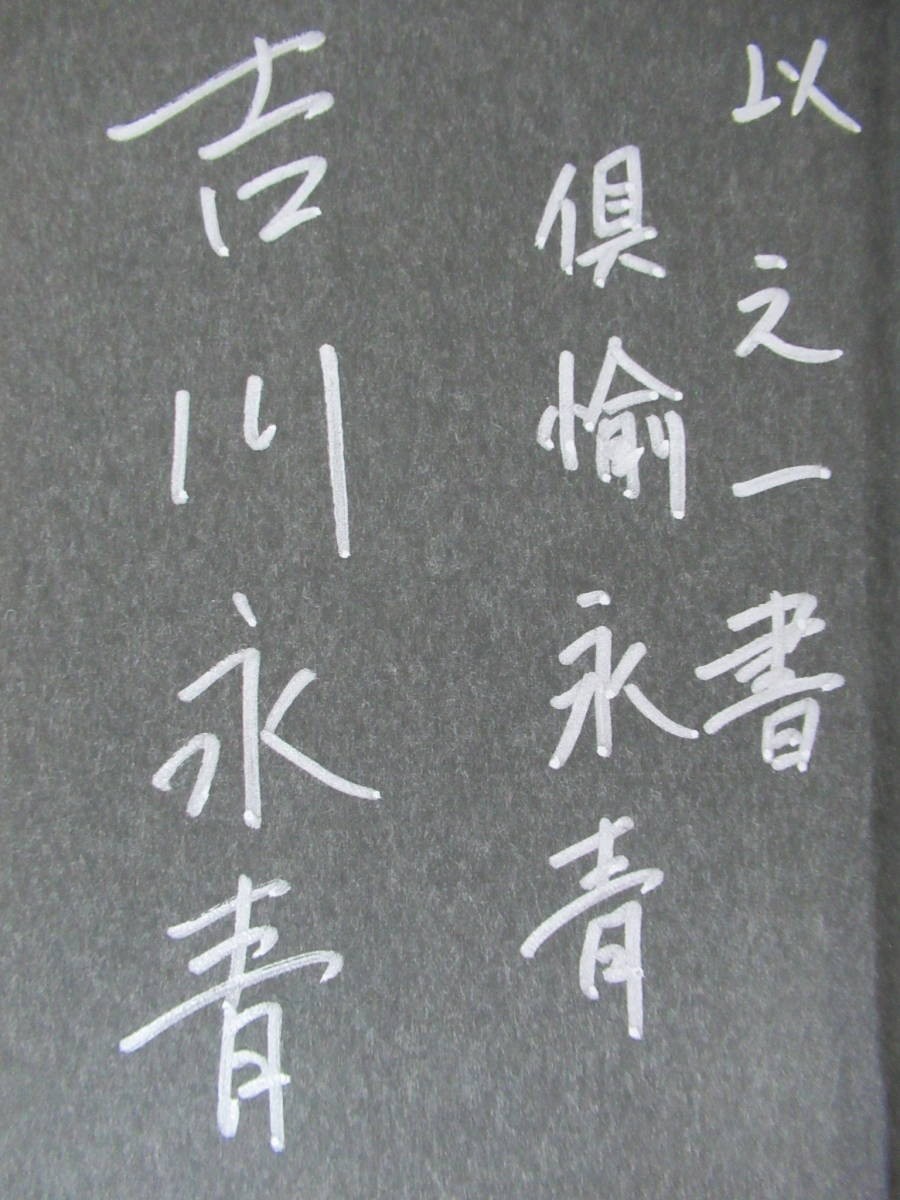 以之一書
倶愉永青
吉川永青